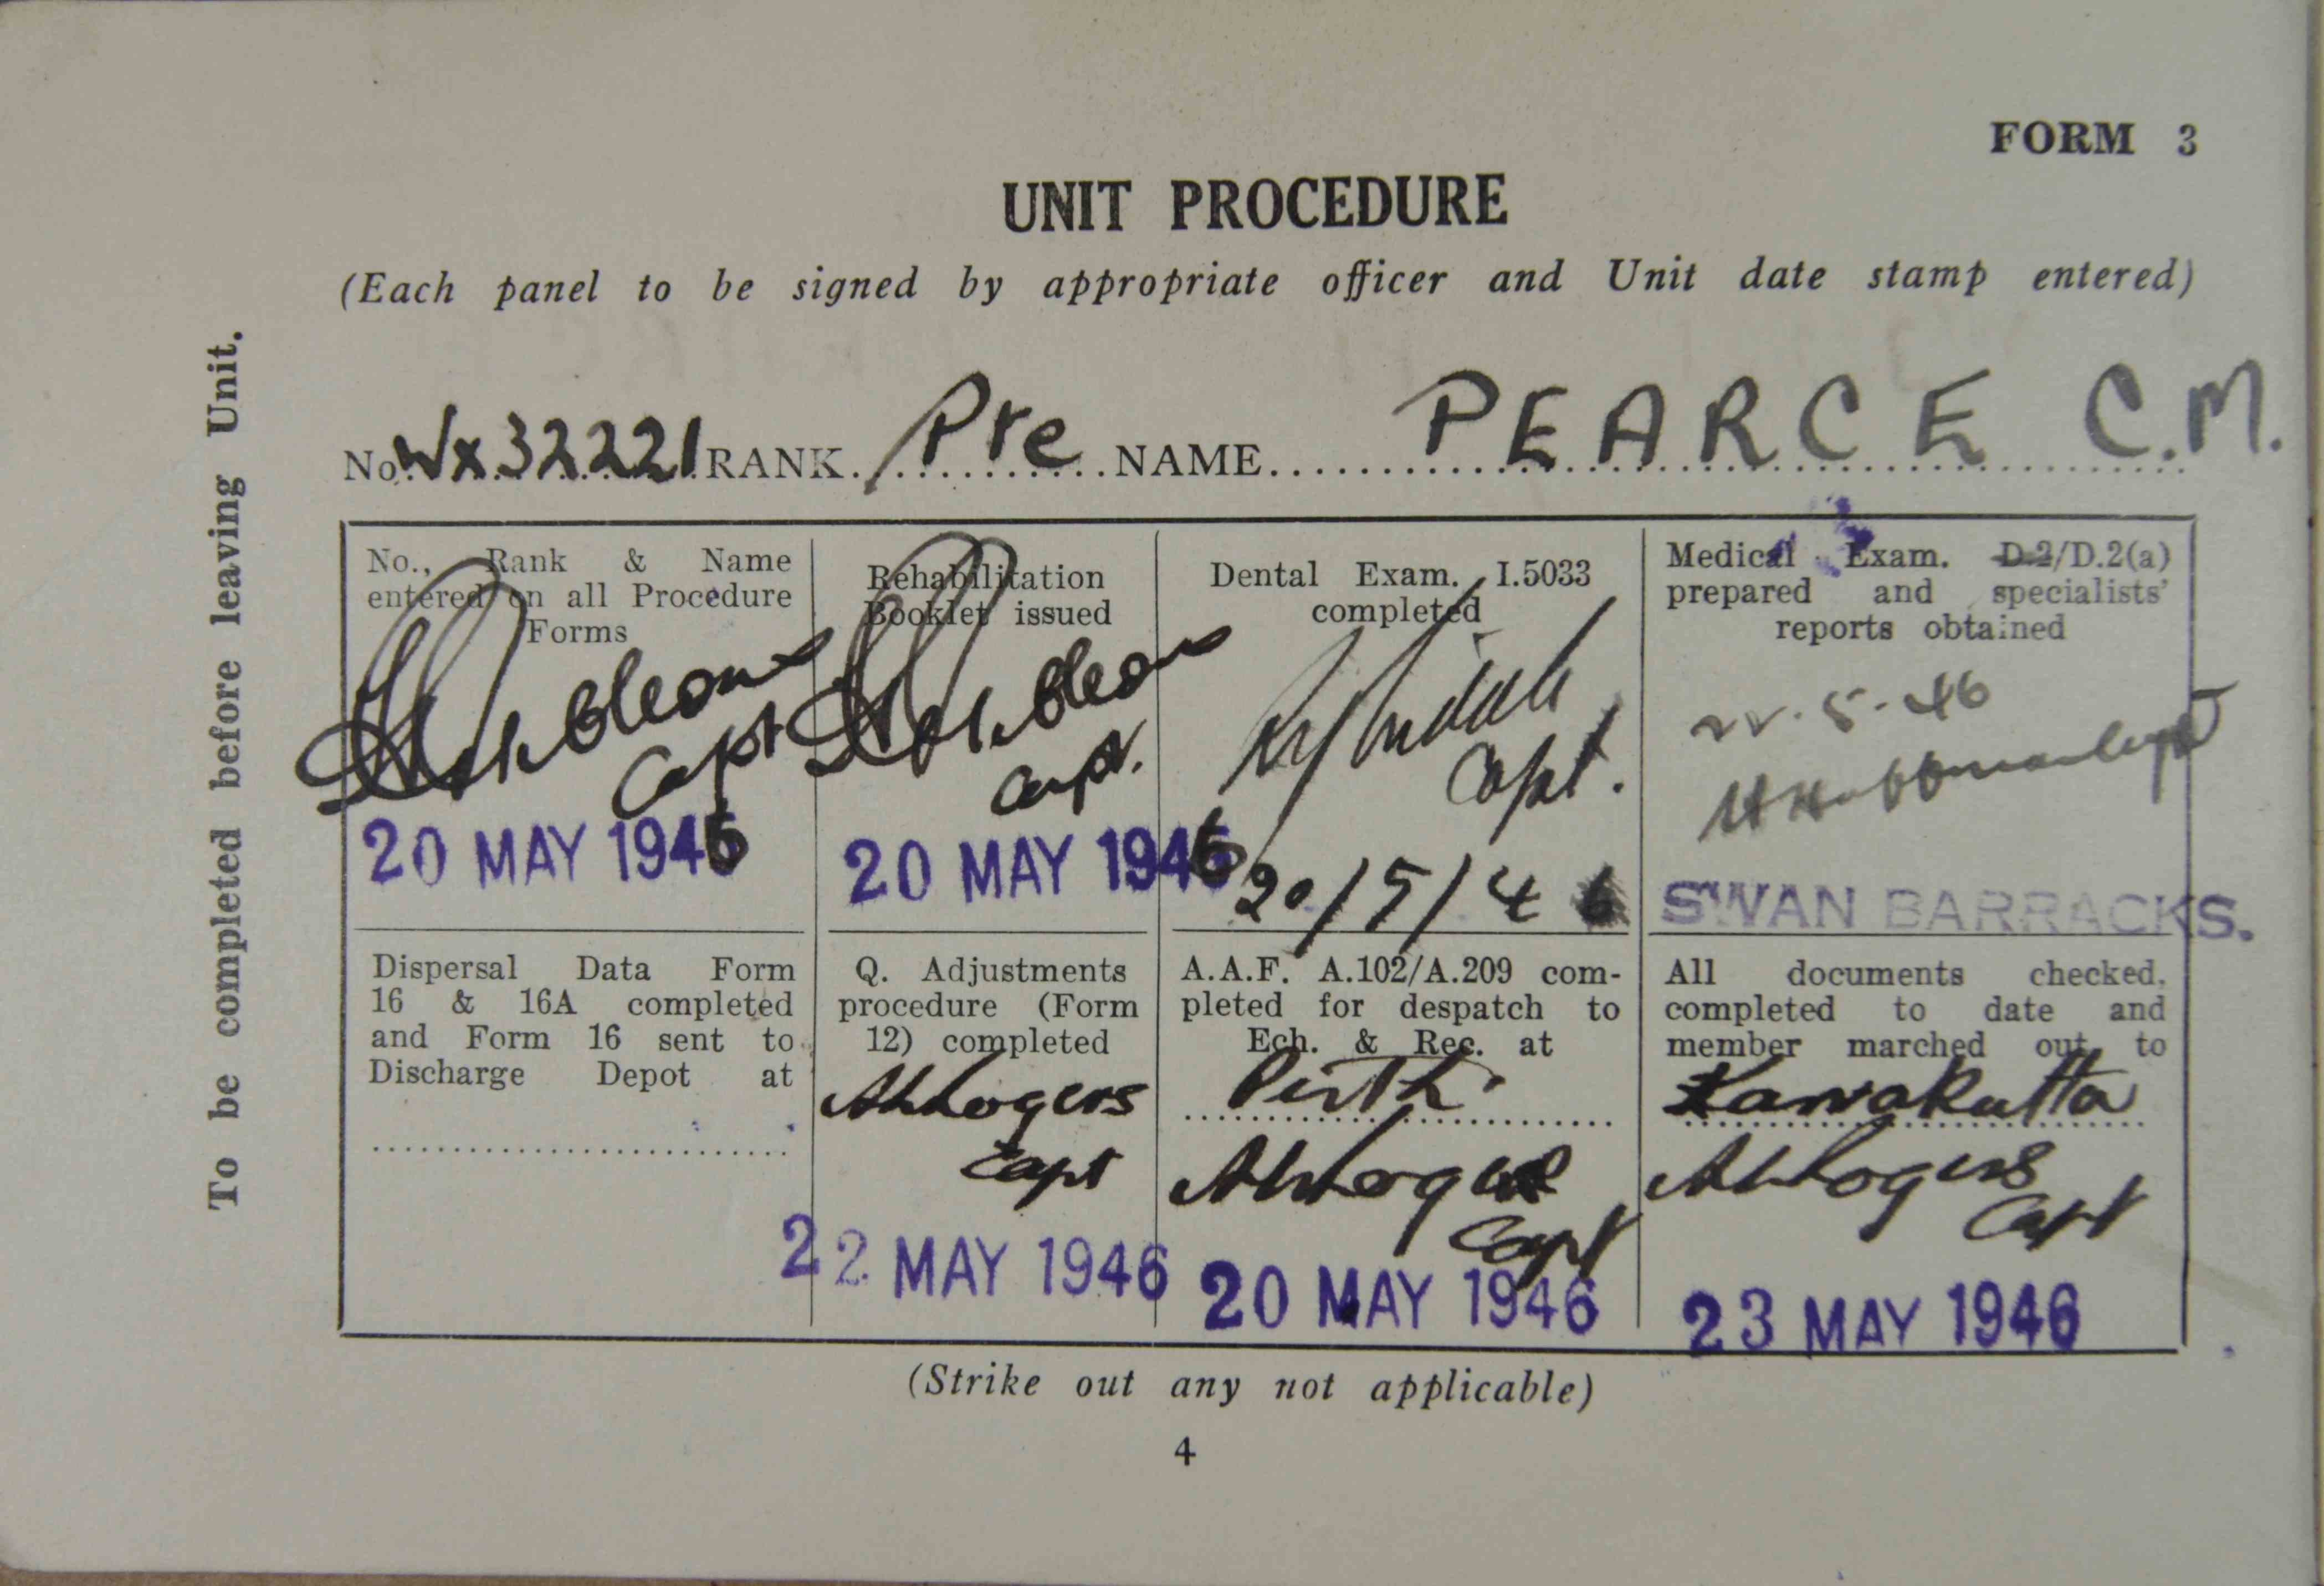 FORM 3
UNIT PROCEDURE
(Each panel to be signed by appropriate officer and Unit date stamp entered)
To be completed before leaving Unit.
No. Wx32221 RANK. Pte NAME. PEARCE C.M.
No., Rank & Name
entered on all Procedure
Forms
Capt
20 MAY 1946
Rehabilitation
Booklet issued
Capt.
20 MAY 1946
Dental Exam. I.5033
completed
Capt.
20/5/46
Medical Exam. D.2/D.2(a)
prepared and specialists'
reports obtained
22.5.46
SWAN BARRACKS.
Dispersal Data Form
16 & 16A completed
and Form 16 sent to
Discharge Depot at
Q. Adjustments
procedure (Form
12) completed
Capt
22 MAY 1946
A.A.F. A.102/A.209 com-
pleted for despatch to
Ech. & Rec. at
Perth.
Capt
20 MAY 1946
All documents checked,
completed to date and
member marched out to
Karrakatta
Capt
23 MAY 1946
(Strike out any not applicable)
4